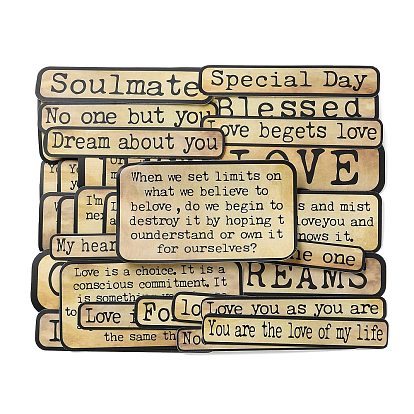 Soulmate
Special Day
No one but you
Blessed
Dream about you
Love begets love
LOVE
When we set limits on
what we believe to
belove, do we begin to
destroy it by hoping t
ounderstand or own it
for ourselves?
I'm
s and mist
loveyou and
nows it.
My hear
the one
Love is a choice. It is a
conscious commitment. It
is someth
REAMS
Love i
Fo
lo
Love you as you are
the same th
No
You are the love of my life